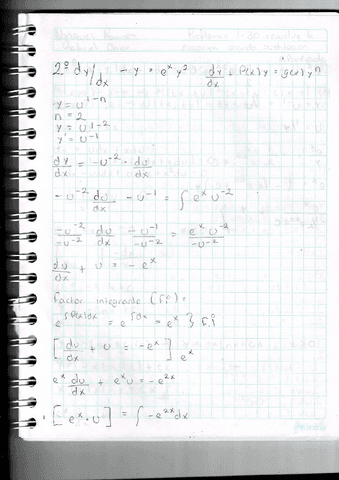 2º dy/dx - y = e^x y^2    dy/dx + P(x)y = g(x)y^n
y = u^1-n
n = 2
y = u^1-2
y = u^-1
dy/dx = -u^-2 · du/dx
-u^-2 du/dx - u^-1 = ∫ e^x u^-2
-u^-2/-u^-2 du/dx - u^-1/-u^-2 = e^x u^-2/-u^-2
du/dx + u = -e^x
Factor integrante (F.i):
e^∫P(x)dx = e^∫dx = e^x } F.i
[du/dx + u = -e^x] e^x
e^x du/dx + e^x u = -e^2x
[e^x · u] = ∫ -e^2x dx